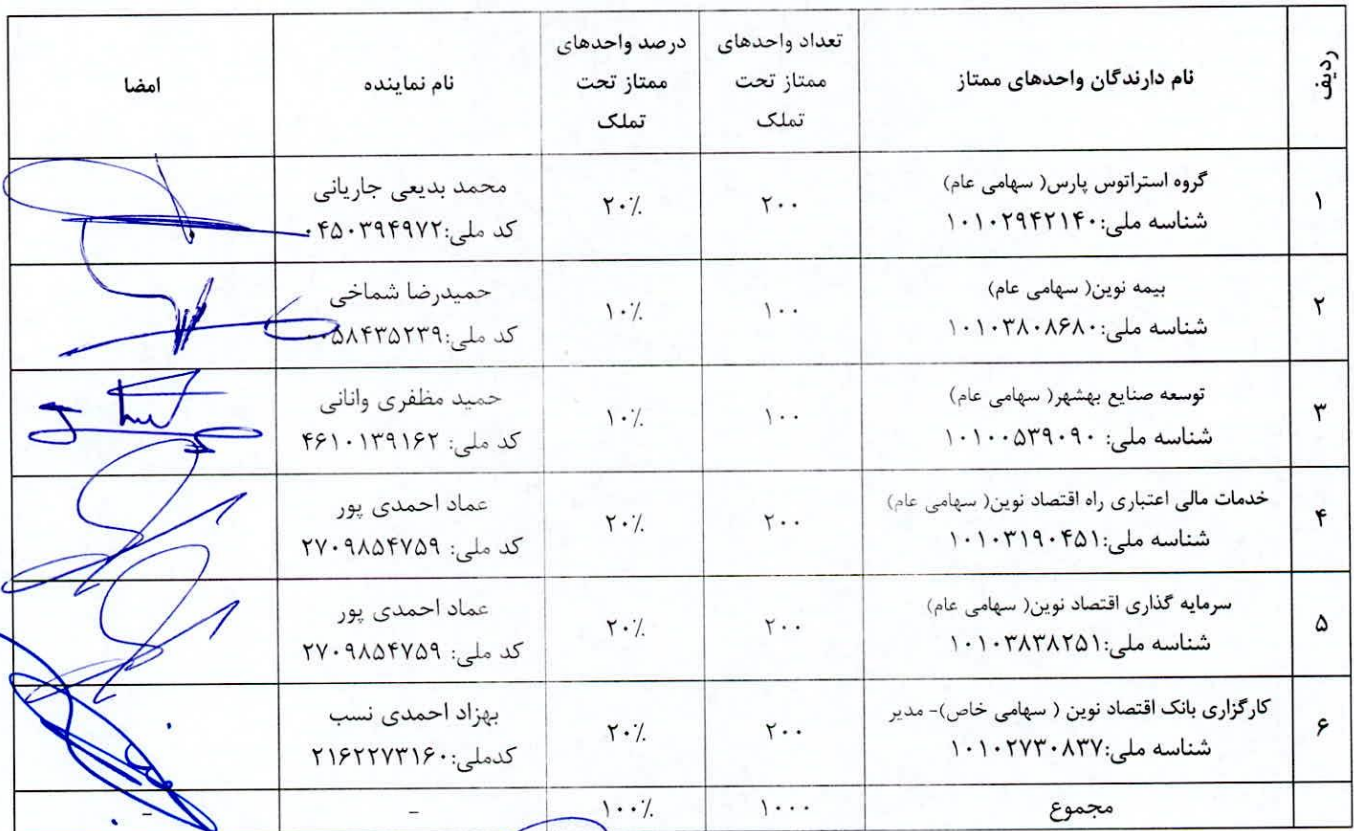 ردیف
نام دارندگان واحدهای ممتاز
تعداد واحدهای
ممتاز تحت
تملک
درصد واحدهای
ممتاز تحت
تملک
نام نماینده
امضا
۱
گروه استراتوس پارس( سهامی عام)
شناسه ملی:۱۰۱۰۲۹۴۲۱۴۰
۲۰۰
۲۰٪
محمد بدیعی جاریانی
کد ملی:۰۴۵۰۳۹۴۹۷۲
۲
بیمه نوین( سهامی عام)
شناسه ملی:۱۰۱۰۳۸۰۸۶۸۰
۱۰۰
۱۰٪
حمیدرضا شماخی
کد ملی:
۳
توسعه صنایع بهشهر( سهامی عام)
شناسه ملی: ۱۰۱۰۰۵۳۹۰۹۰
۱۰۰
۱۰٪
حمید مظفری وانانی
کد ملی: ۴۶۱۰۱۳۹۱۶۲
۴
خدمات مالی اعتباری راه اقتصاد نوین( سهامی عام)
شناسه ملی:۱۰۱۰۳۱۹۰۴۵۱
۲۰۰
۲۰٪
عماد احمدی پور
کد ملی: ۲۷۰۹۸۵۴۷۵۹
۵
سرمایه گذاری اقتصاد نوین( سهامی عام)
شناسه ملی:۱۰۱۰۳۸۳۸۲۵۱
۲۰۰
۲۰٪
عماد احمدی پور
کد ملی: ۲۷۰۹۸۵۴۷۵۹
۶
کارگزاری بانک اقتصاد نوین ( سهامی خاص)- مدیر
شناسه ملی:۱۰۱۰۲۷۳۰۸۳۷
۲۰۰
۲۰٪
بهزاد احمدی نسب
کدملی:۲۱۶۲۲۷۳۱۶۰
مجموع
۱۰۰۰
۱۰۰٪
-
-